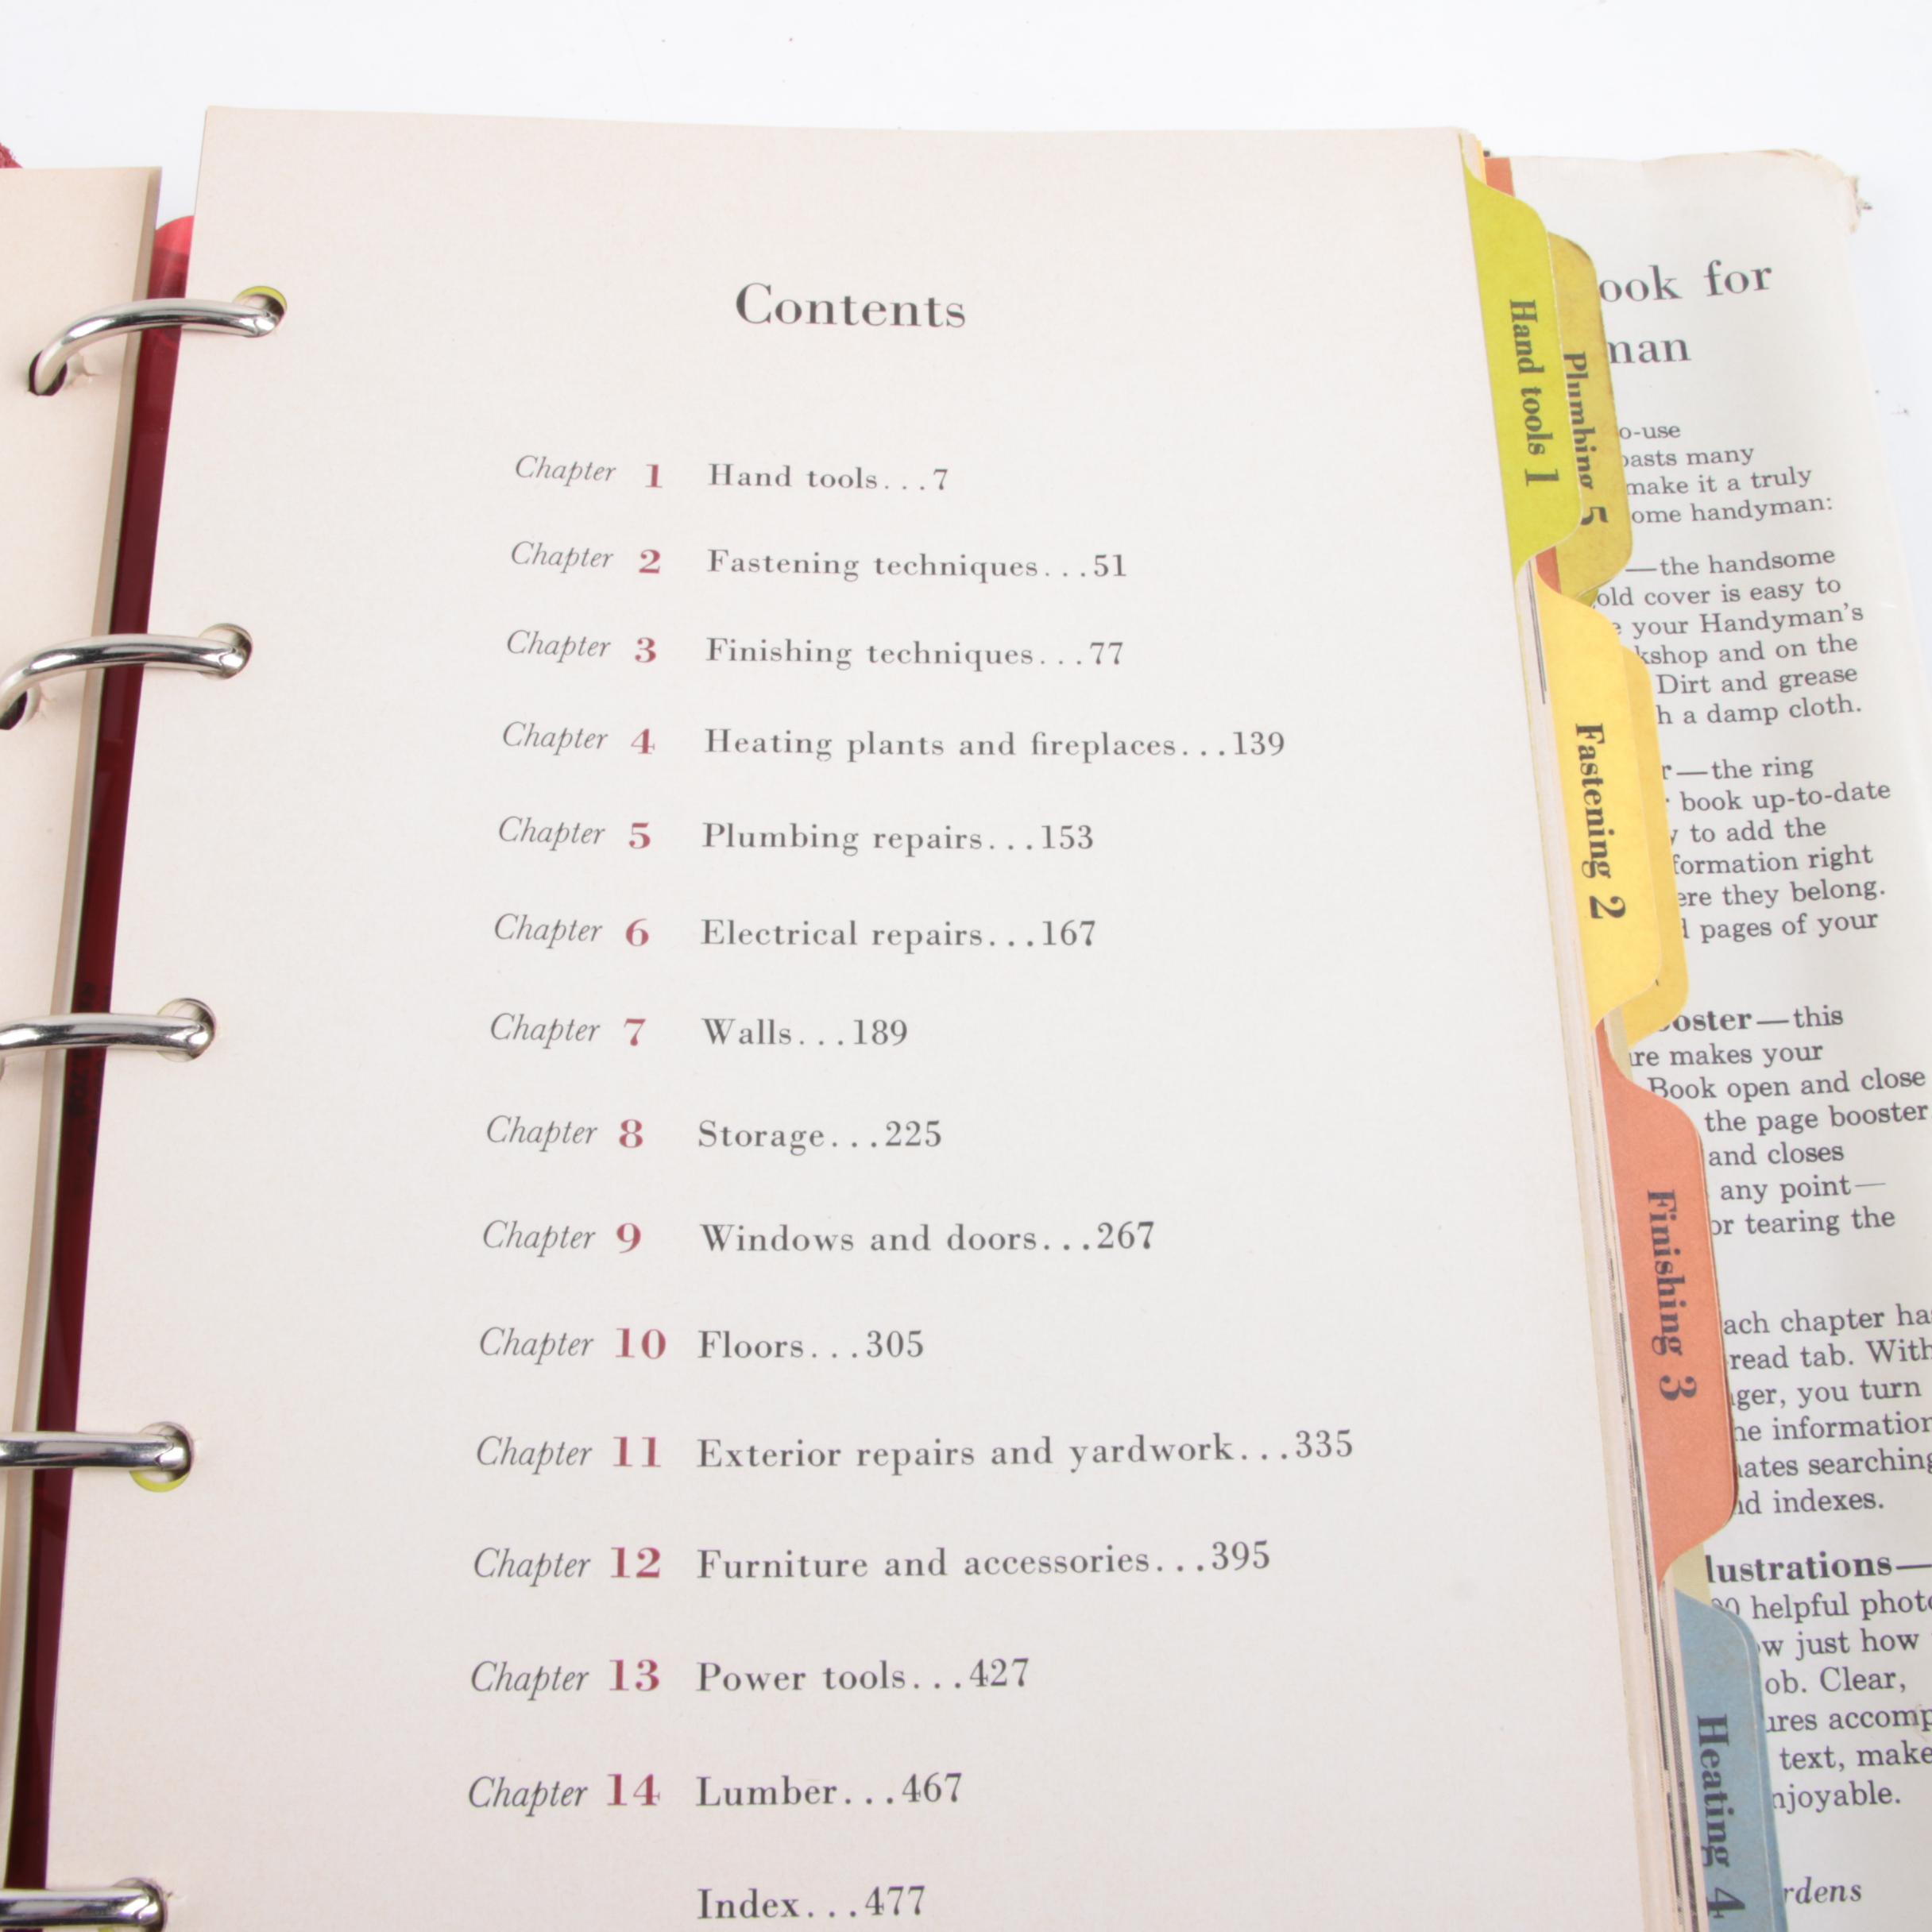 Contents
Chapter 1 Hand tools...7
Chapter 2 Fastening techniques...51
Chapter 3 Finishing techniques...77
Chapter 4 Heating plants and fireplaces...139
Chapter 5 Plumbing repairs...153
Chapter 6 Electrical repairs...167
Chapter 7 Walls...189
Chapter 8 Storage...225
Chapter 9 Windows and doors...267
Chapter 10 Floors...305
Chapter 11 Exterior repairs and yardwork...335
Chapter 12 Furniture and accessories...395
Chapter 13 Power tools...427
Chapter 14 Lumber...467
Index...477
Hand tools 1
Plumbing 5
Fastening 2
Finishing 3
Heating 4
for
-use
many
make it a truly
handyman:
—the handsome
cover is easy to
your Handyman's
and on the
Dirt and grease
a damp cloth.
—the ring
book up-to-date
to add the
right
they belong.
pages of your
—this
makes your
Book open and close
the page booster
and closes
any point—
or tearing the
chapter
read tab. With
you turn
information
searching
indexes.
helpful
just how
Clear,
text, make